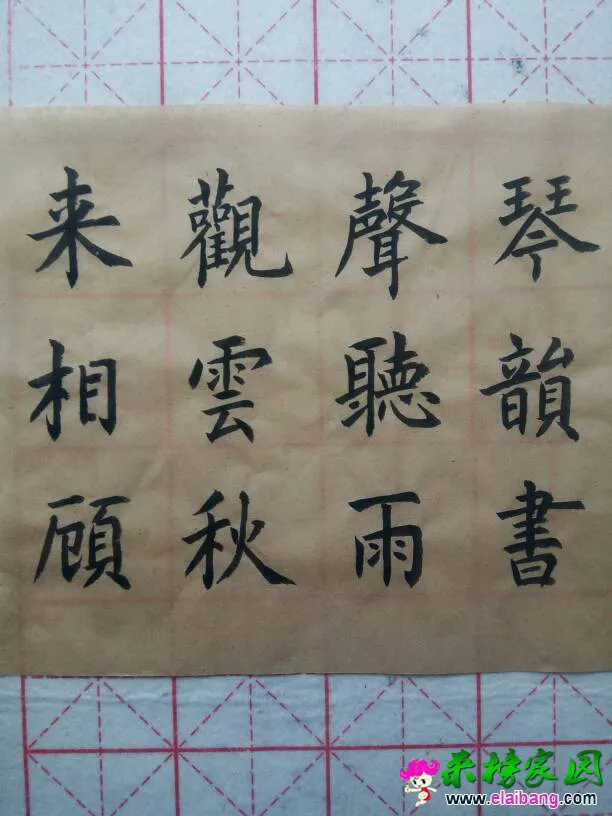 琴韻書
聲聽雨
觀雲秋
来相顾
来榜家园
www.elaibang.com